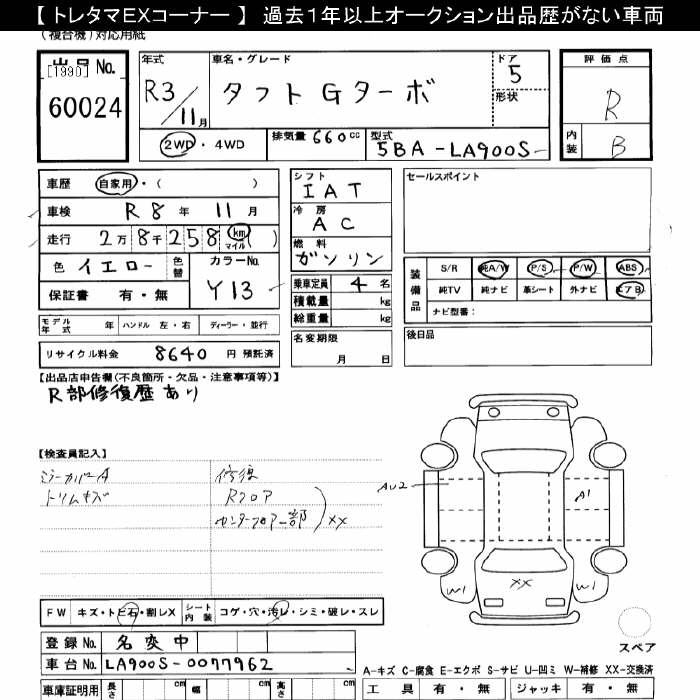 【 トレタマEXコーナー 】 過去１年以上オークション出品歴がない車両
(複合機)対応用紙
出品 No.
[1990]
60024
年式 R3/11月
車名・グレード
タフト G ターボ
ドア 5
形状
評価点 R
内装 B
2WD・4WD
排気量 660cc
型式 5BA-LA900S-
車歴 自家用・( )
車検 R8年 11月
走行 2万8千258 km マイル ( )
色 イエロー 色替
カラーNo. Y13
保証書 有・無
モデル年式 年 ハンドル 左・右 ディーラー・並行
リサイクル料金 8640 円 預託済
シフト IAT
冷房 AC
燃料 ガソリン
乗車定員 4名
積載量 kg
総重量 kg
名変期限
月 日
セールスポイント
装備品
S/R 純A/W P/S P/W ABS
純TV 純ナビ 革シート 外ナビ エアB
ナビ型番：
後日品
【出品店申告欄(不良箇所・欠品・注意事項等)】
R部修復歴あり
【検査員記入】
ミラーカバーA 修復
トリムキズ Rフロア
センターフロアー部 XX
AU2
A1
W1
XX
W1
スペア
FW キズ・トビ石・割レX シート内装 コゲ・穴・汚レ・シミ・破レ・スレ
登録No. 名変中
車台No. LA900S-0077962
A-キズ C-腐食 E-エクボ S-サビ U-凹ミ W-補修 XX-交換済
車庫証明用 長さ cm 幅 cm 高さ cm
工具 有・無 ジャッキ 有・無